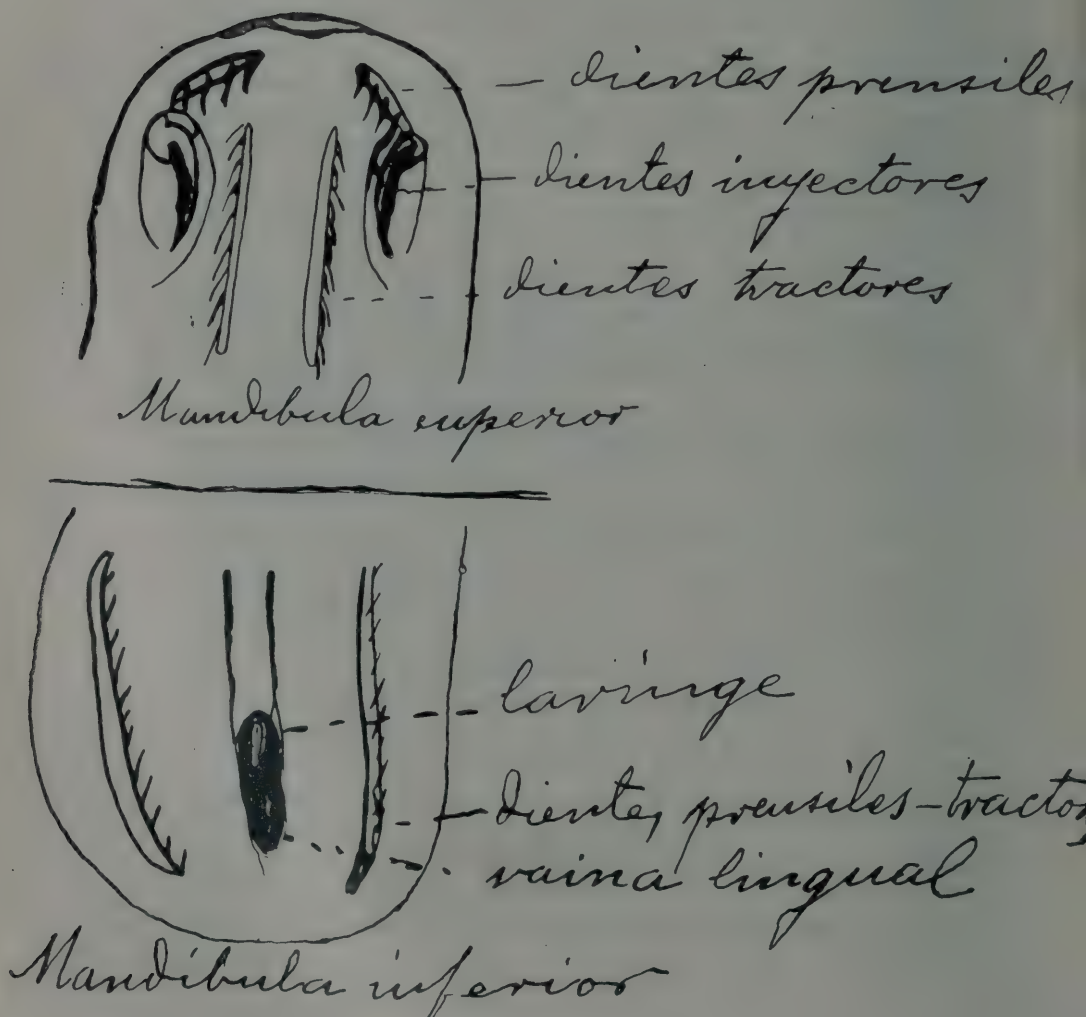 dientes prensiles
dientes inyectores
dientes tractores
Mandibula superior
laringe
dientes prensiles-tractor
vaina lingual
Mandíbula inferior